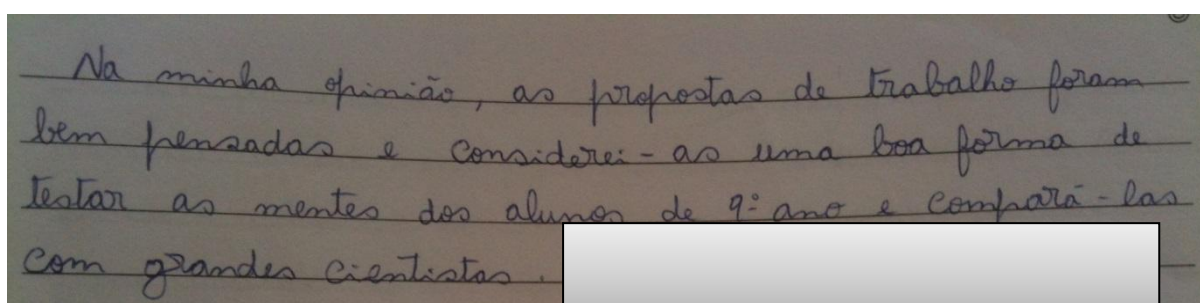 Na minha opinião, as propostas de trabalho foram
bem pensadas e considerei-as uma boa forma de
testar as mentes dos alunos de 9º ano e compará-las
com grandes cientistas.